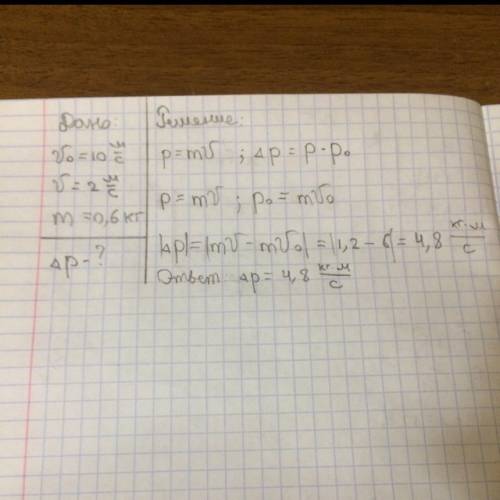 Дано:
v₀ = 10 м/с
v = 2 м/с
m = 0,6 кг
Δp - ?
Решение:
p = mv ; Δp = p - p₀
p = mv ; p₀ = mv₀
|Δp| = |mv - mv₀| = |1,2 - 6| = 4,8 кг·м/с
Ответ: Δp = 4,8 кг·м/с